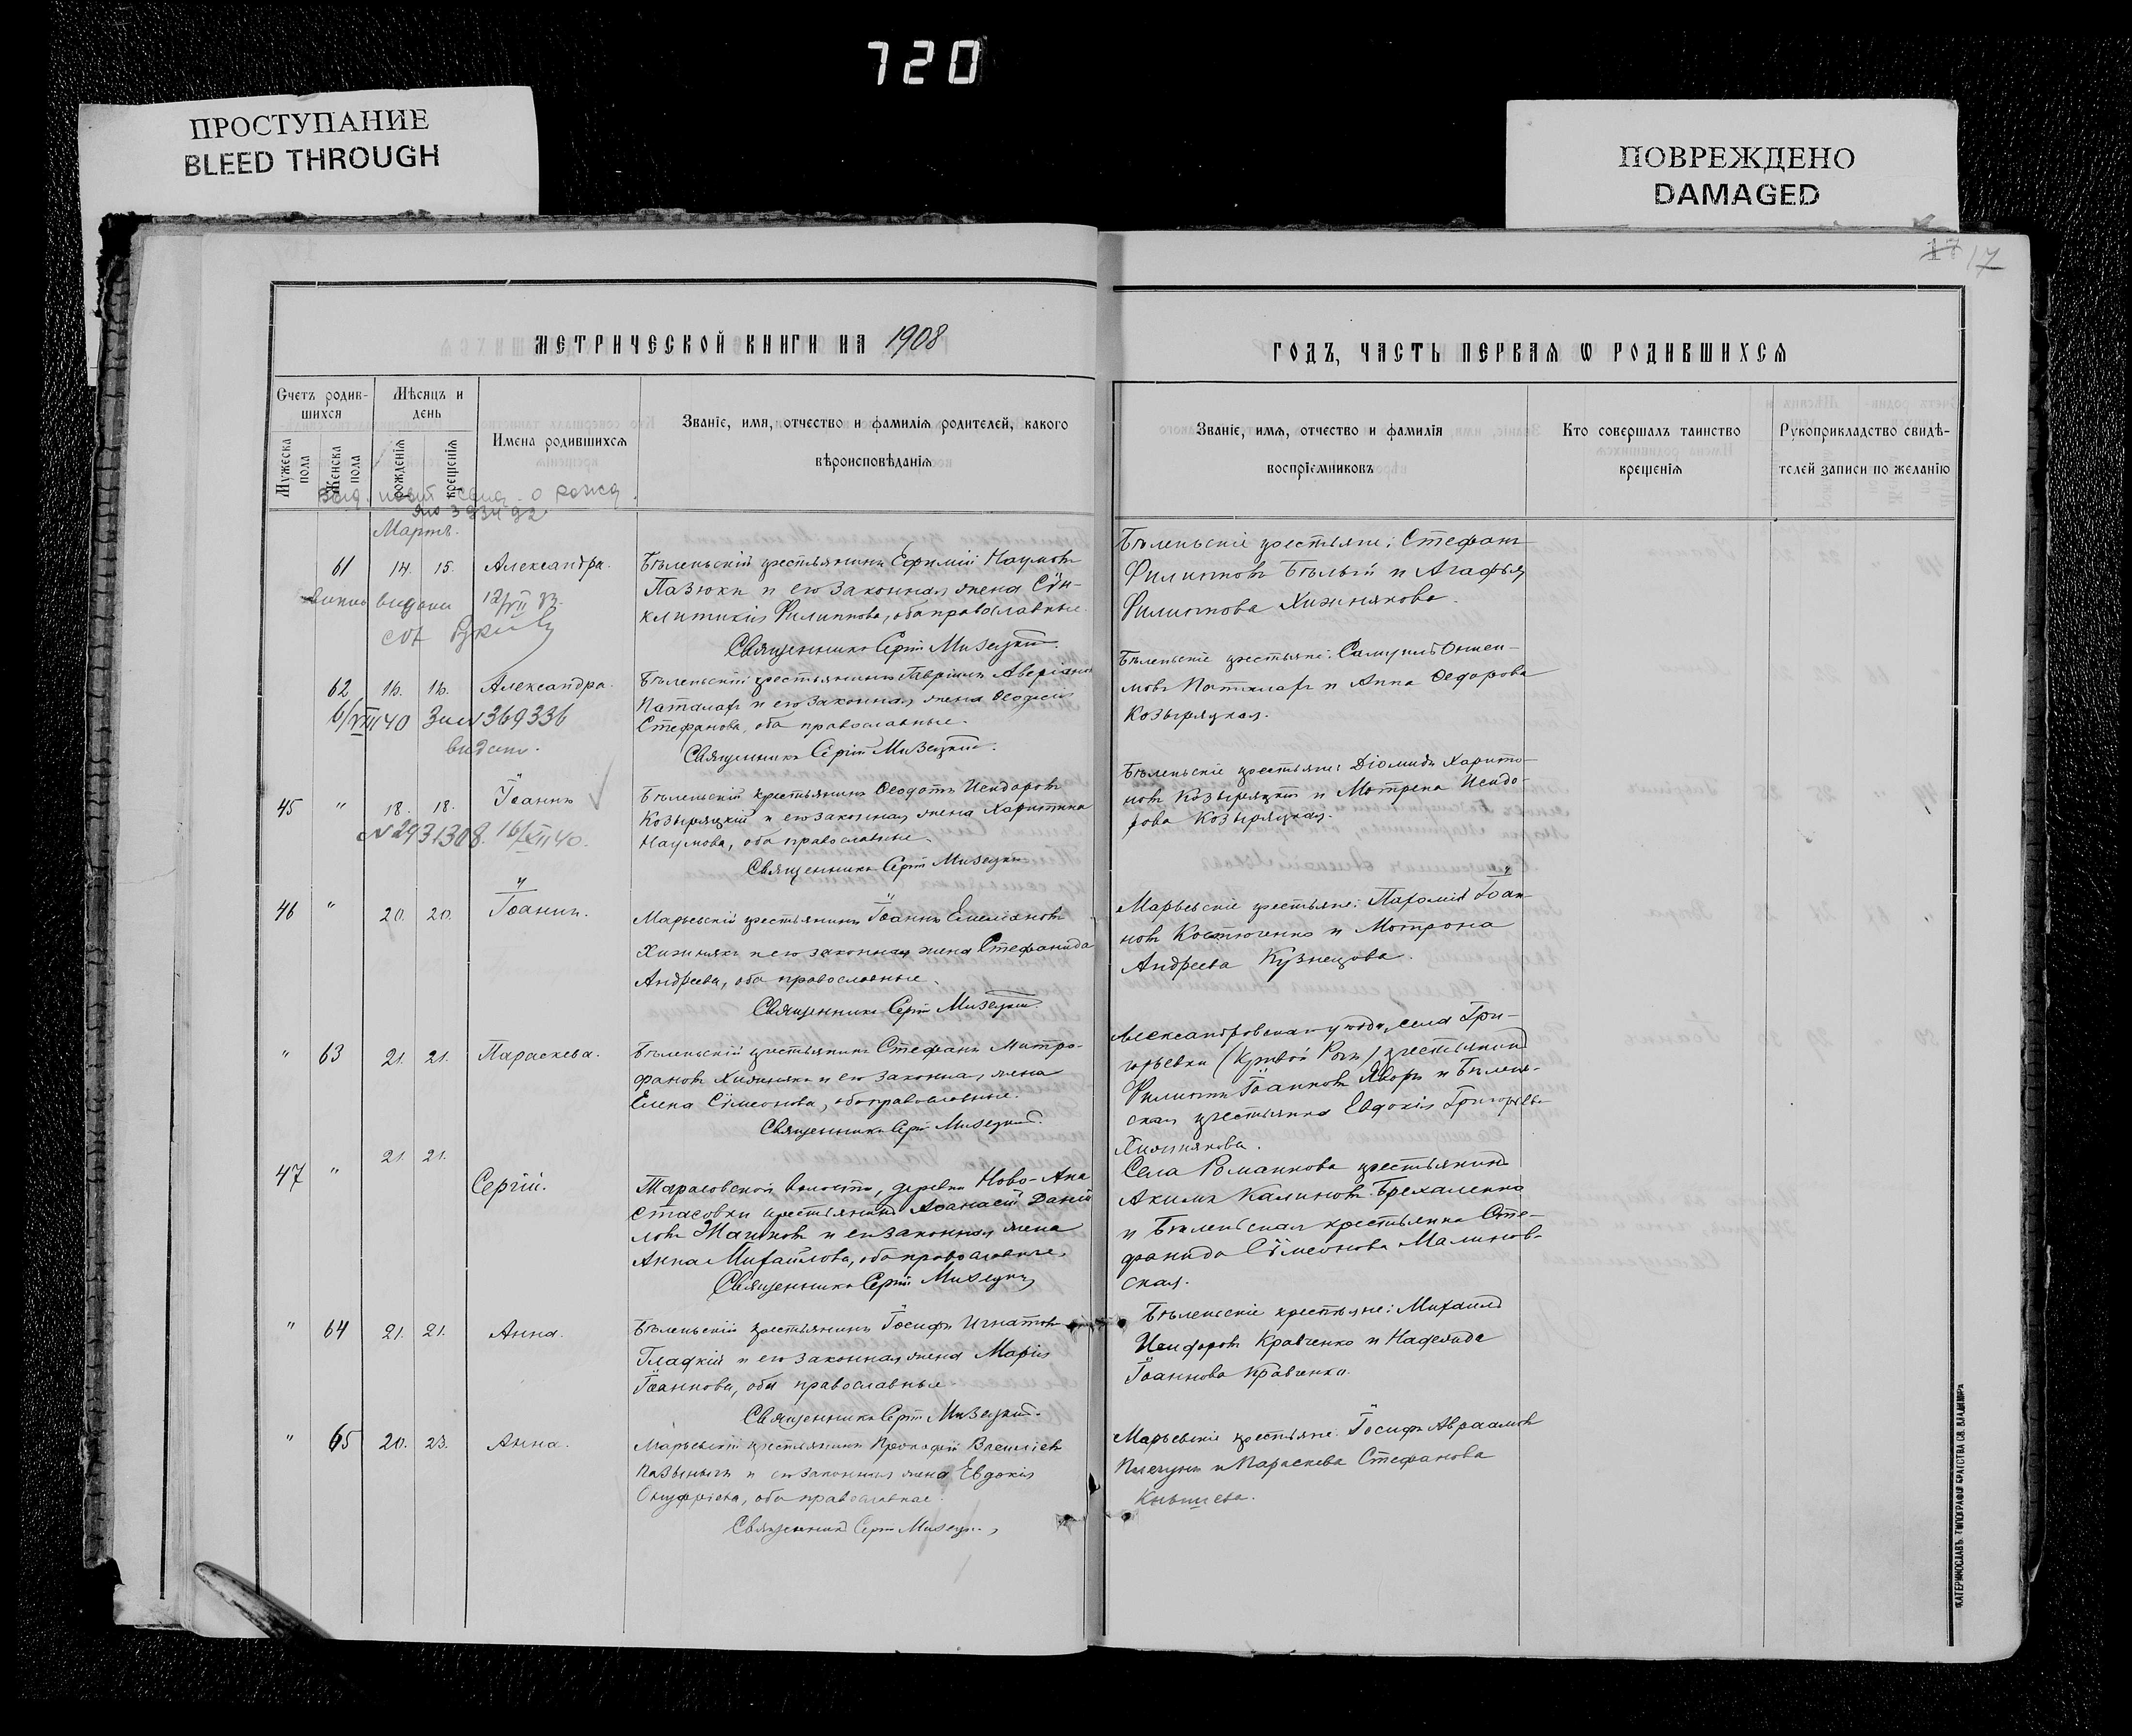 720
ПРОСТУПАНИЕ
BLEED THROUGH
ПОВРЕЖДЕНО
DAMAGED
17 17
МЕТРИЧЕСКОЙ КНИГИ НА 1908
ГОДЪ, ЧАСТЬ ПЕРВАЯ Ѡ РОДИВШИХСЯ
Счетъ родив-
шихся
Мужеска пола
Женска пола
Мѣсяцъ и
день
рожденія
крещенія
Имена родившихся
Званіе, имя, отчество и фамилія родителей, какого
вѣроисповѣданія
Званіе, имя, отчество и фамилія
воспріемниковъ
Кто совершалъ таинство
крещенія
Рукоприкладство свидѣ-
телей записи по желанію
Мартъ.
61 14. 15. Александра.
Бѣленьскій крестьянинъ Ефимій Наумовъ
Пазюкъ и его законная жена Сѵн-
клитикія Филиппова, оба православные.
Священникъ Сергій Мизецкій.
Бѣленьскіе крестьяне: Стефанъ
Филипповъ Бѣлый и Агафья
Филиппова Хижнякова.
видани 12/VII
62 16. 16. Александра.
6/VIII 40 369336
видано.
Бѣленьскій крестьянинъ Гавріилъ Аверіановъ
Паталахъ и его законная жена Ѳеодосія
Стефанова, оба православные.
Священникъ Сергій Мизецкій.
Бѣленьскіе крестьяне: Самуилъ Ониси-
мовъ Паталахъ и Анна Ѳедорова
Козыряцкая.
45 " 18. 18. Іоаннъ
N 2931308. 16/XII 40.
Бѣленьскій крестьянинъ Ѳеодотъ Исидоровъ
Козыряцкій и его законная жена Харитина
Наумова, оба православные.
Священникъ Сергій Мизецкій.
Бѣленьскіе крестьяне: Діомидъ Харито-
новъ Козыряцкій и Мотрона Исидо-
рова Козыряцкая.
46 " 20. 20. Іоаннъ.
Марьевскій крестьянинъ Іоаннъ Емеліановъ
Хижнякъ и его законная жена Стефанида
Андреева, оба православные.
Священникъ Сергій Мизецкій.
Марьевскіе крестьяне: Пахомій Іоан-
новъ Костюченко и Мотрона
Андреева Кузнецова.
" 63 21. 21. Параскева.
Бѣленьскій крестьянинъ Стефанъ Митро-
фановъ Хижнякъ и его законная жена
Елена Сѵмеонова, оба православные.
Священникъ Сергій Мизецкій.
Александровскаго уѣзда, села Гри-
горьевки (Кривой Рогъ) крестьянинъ
Филиппъ Іоанновъ Яворъ и Бѣлень-
ская крестьянка Евдокія Григорьева
Хижнякова.
47 " 21. 21. Сергій.
Тарасовской волости, деревни Ново-Ана
стасовки крестьянинъ Аѳанасій Даніи
ловъ и его законная жена
Анна Михайлова, оба православные.
Священникъ Сергій Мизецкій
Села Романкова крестьянинъ
Акимъ Калиновъ Брехаленко
и Бѣленьская крестьянка Сте-
фанида Сѵмеонова Малинов-
ская.
" 64 21. 21. Анна.
Бѣленьскій крестьянинъ Іосифъ Игнатовъ
Гладкій и его законная жена Марія
Іоаннова, оба православные.
Священникъ Сергій Мизецкій.
Бѣленьскіе крестьяне: Михаилъ
Исидоровъ Кравченко и Надежда
Іоаннова Кравченко.
" 65 20. 23. Анна.
Марьевскій крестьянинъ Прокофій Василіевъ
и его законная жена Евдокія
Онуфріева, оба православные.
Священникъ Сергій Мизецкій
Марьевскіе крестьяне: Іосифъ Авраамовъ
Плечунъ и Параскева Стефанова
ЕКАТЕРИНОСЛАВЪ. ТИПОГРАФІЯ БРАТСТВА СВ. ВЛАДИМІРА